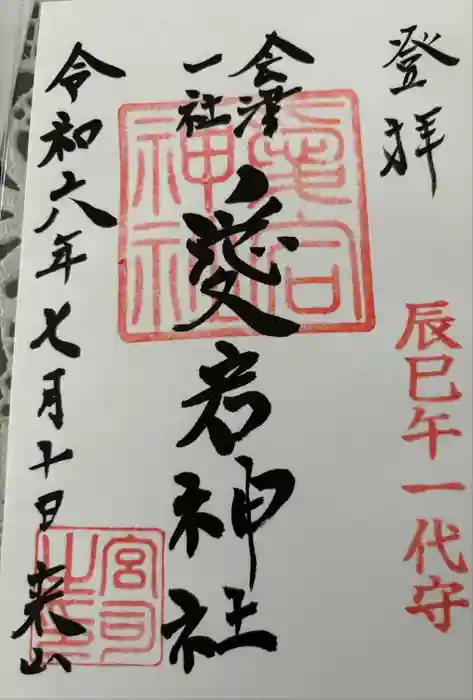 登拝
辰巳午一代守
会津
一社
愛宕神社
愛宕
神社
令和六年七月十日来山
宮司
之印